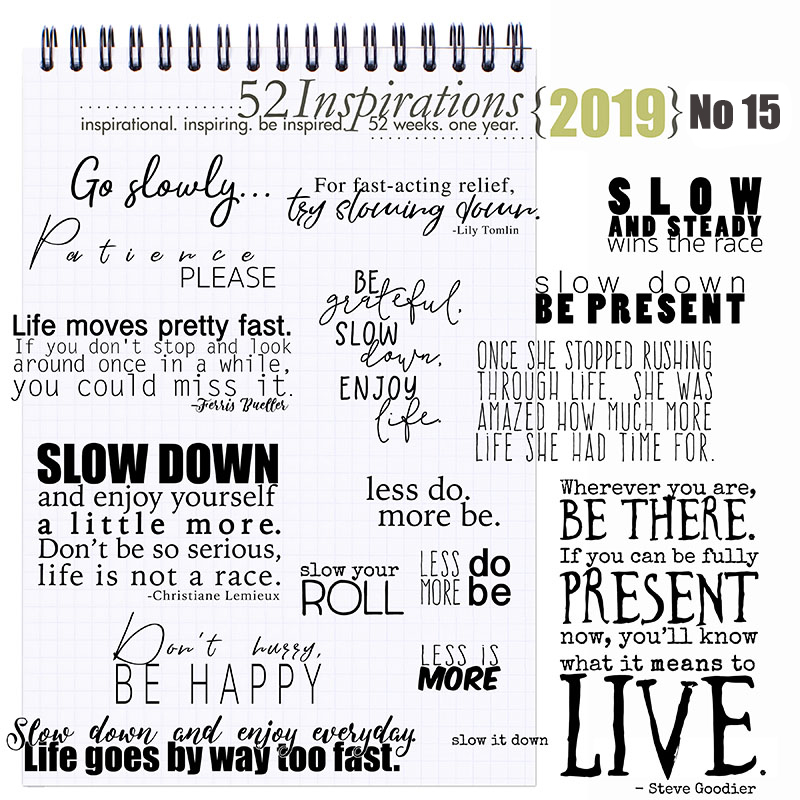 52 Inspirations {2019} No 15
inspirational. inspiring. be inspired. 52 weeks. one year.
Go slowly...
For fast-acting relief,
try slowing down.
-Lily Tomlin
SLOW
AND STEADY
wins the race
Patience
PLEASE
BE
grateful.
SLOW
down,
ENJOY
life.
slow down
BE PRESENT
Life moves pretty fast.
If you don't stop and look
around once in a while,
you could miss it.
-Ferris Bueller
ONCE SHE STOPPED RUSHING
THROUGH LIFE. SHE WAS
AMAZED HOW MUCH MORE
LIFE SHE HAD TIME FOR.
SLOW DOWN
and enjoy yourself
a little more.
Don't be so serious,
life is not a race.
-Christiane Lemieux
less do.
more be.
slow your
ROLL
LESS do
MORE be
Wherever you are,
BE THERE.
If you can be fully
PRESENT
now, you'll know
what it means to
LIVE.
- Steve Goodier
Don't hurry,
BE HAPPY
LESS IS
MORE
Slow down and enjoy everyday.
Life goes by way too fast.
slow it down